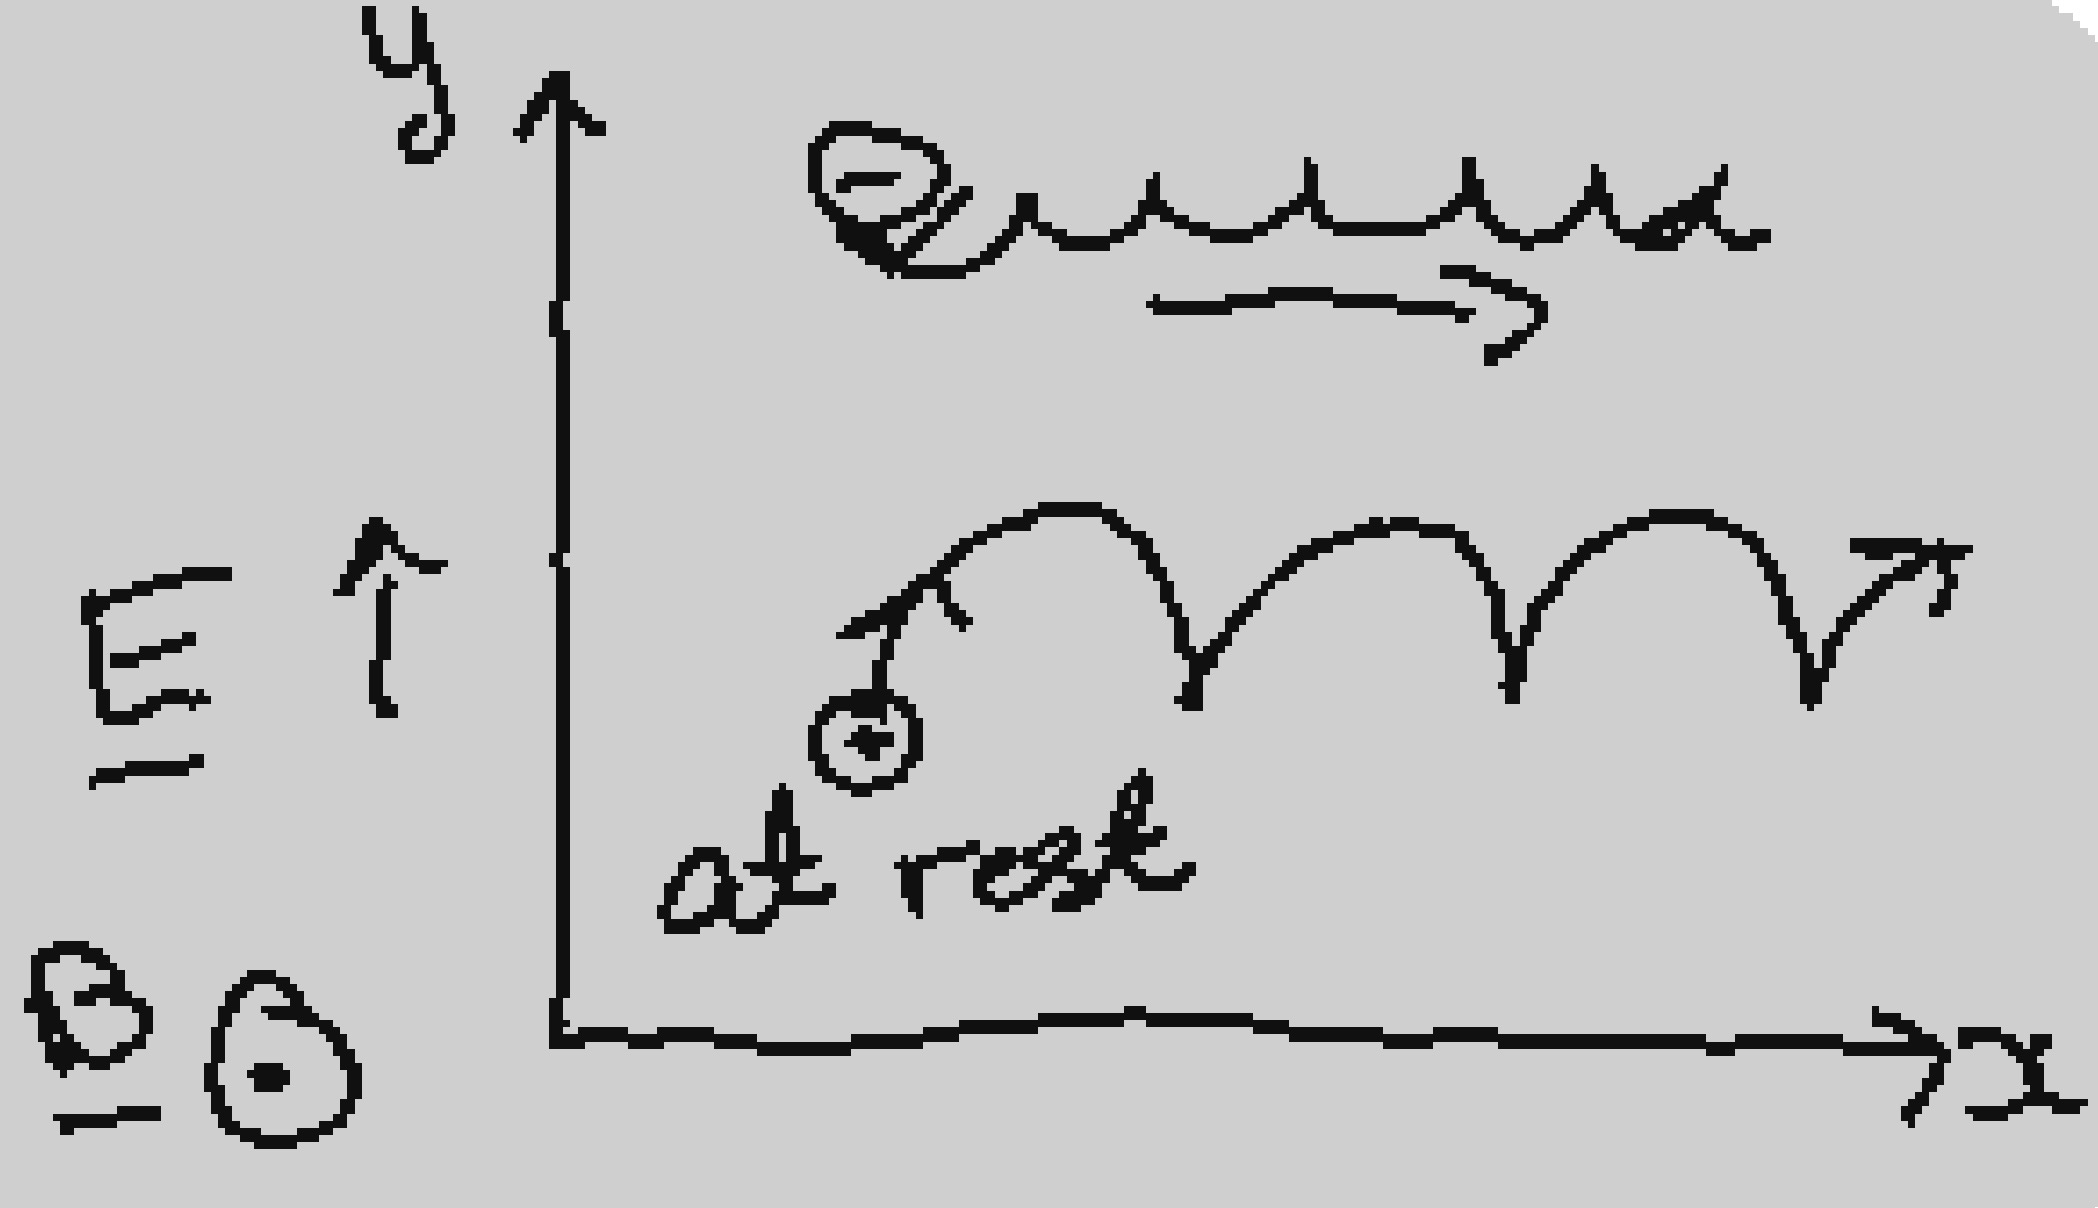 y
-
E
+
at rest
B
x